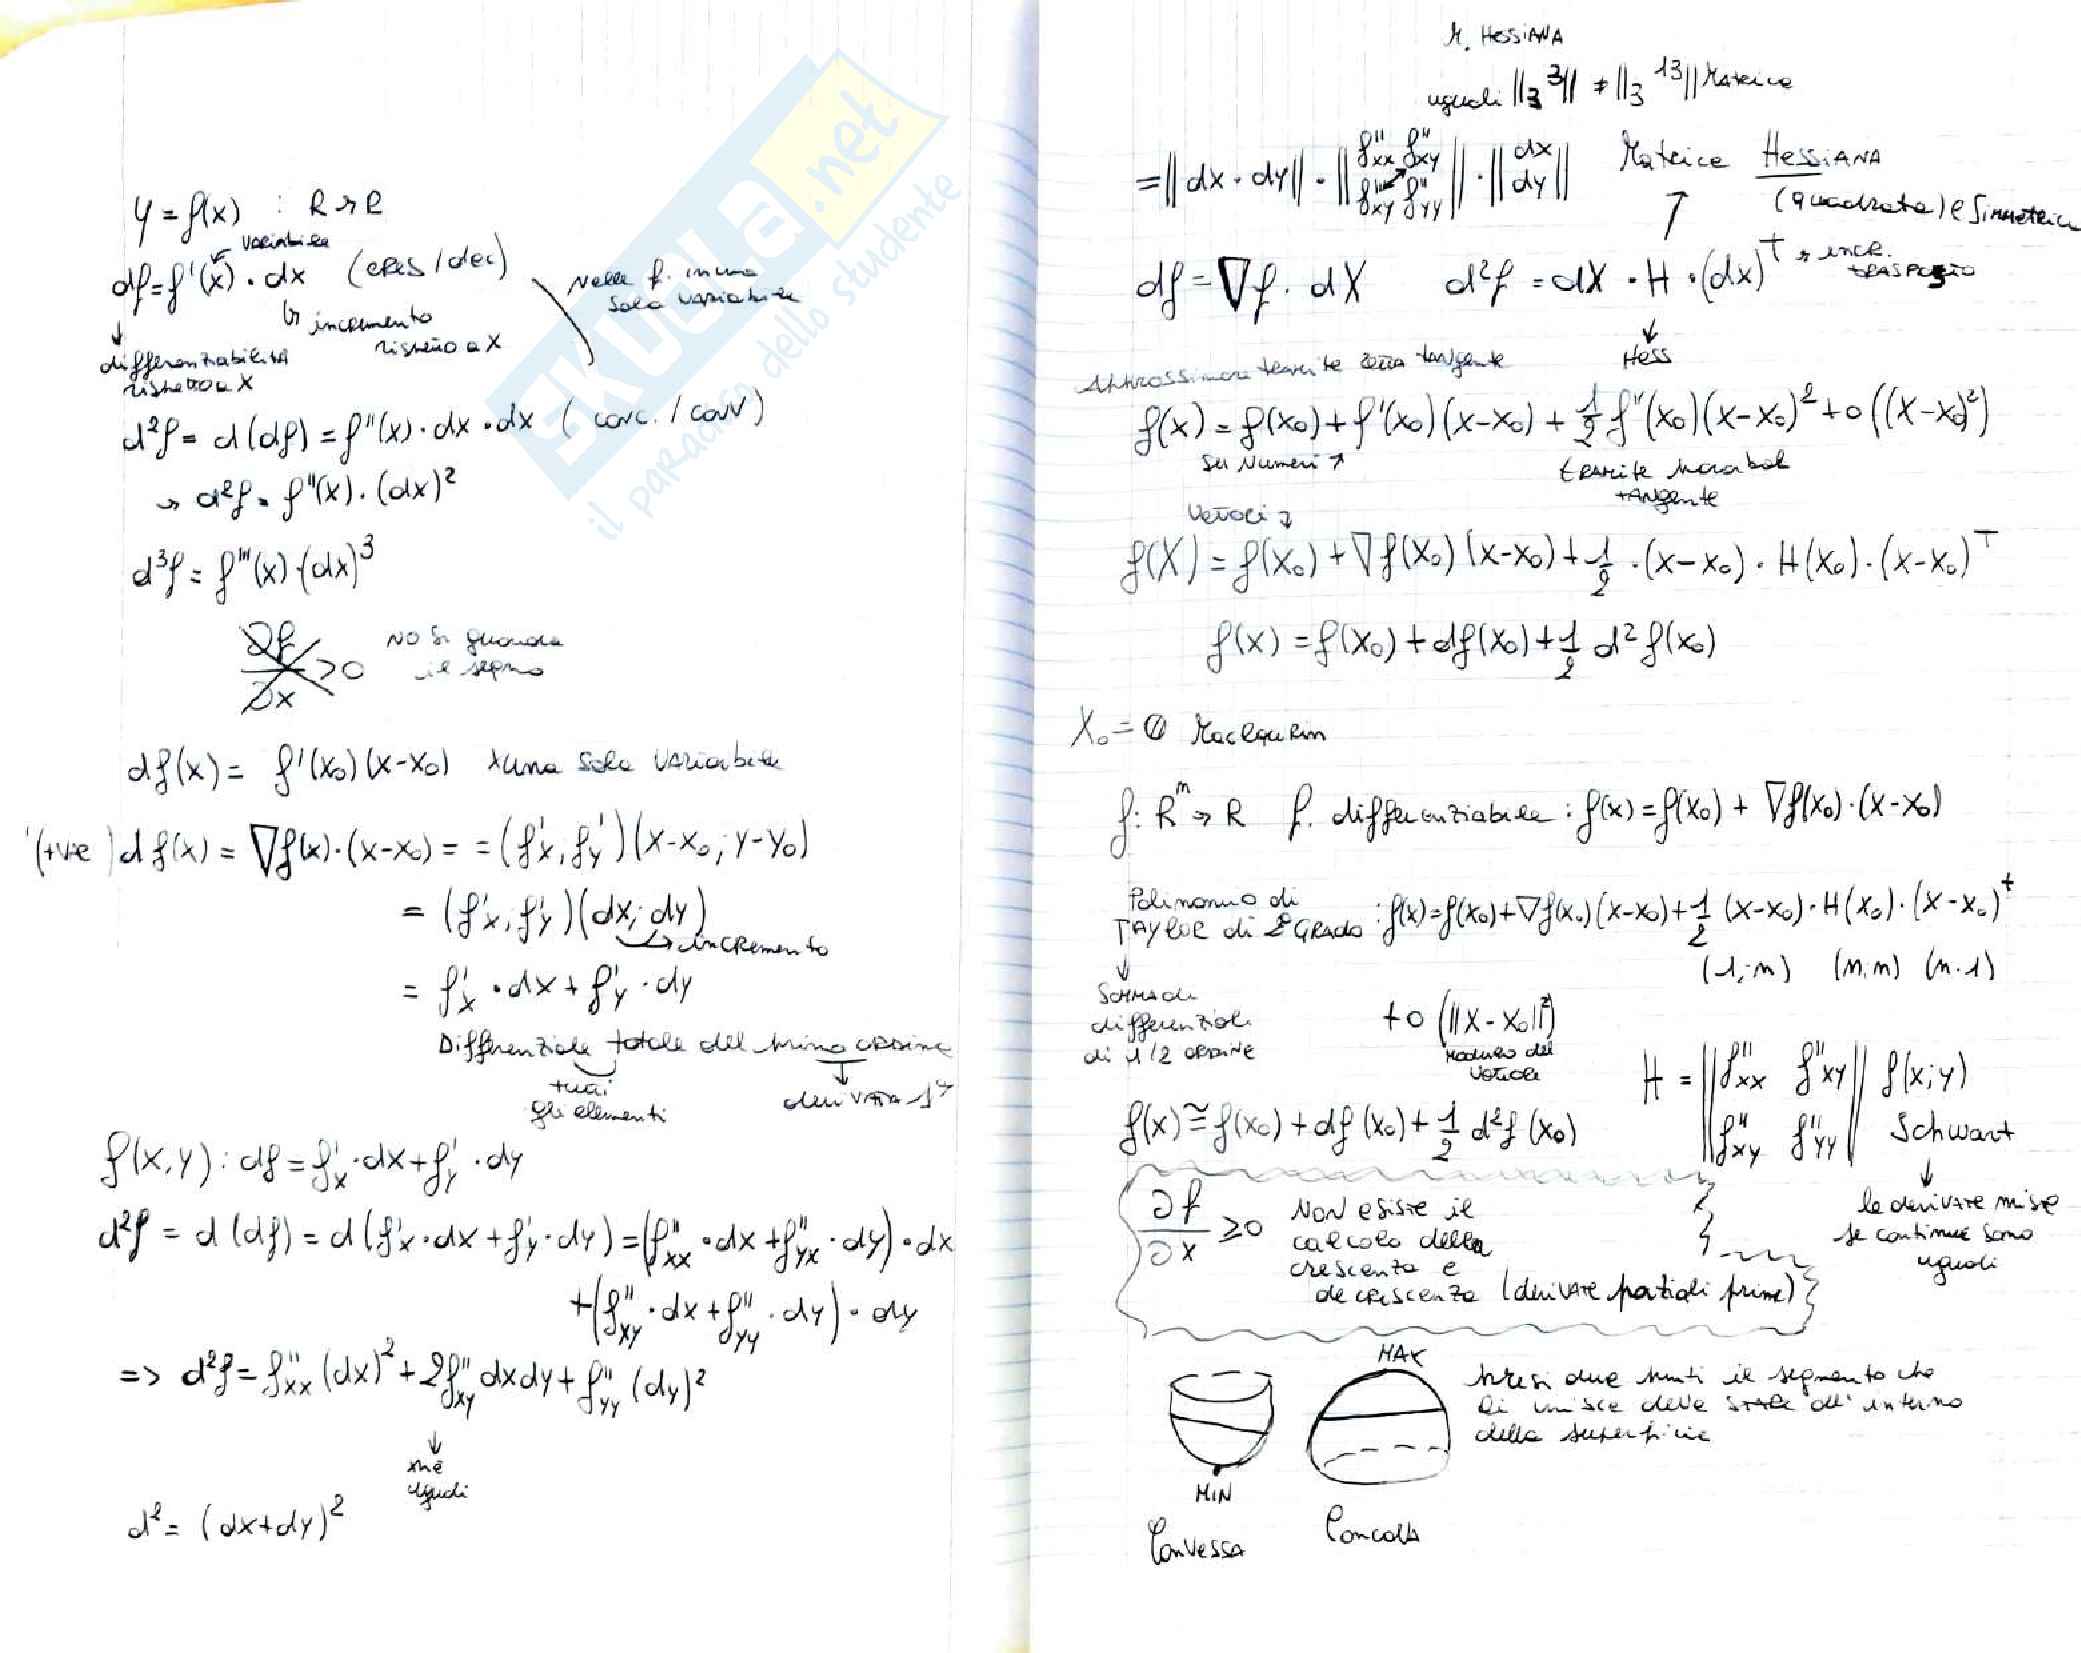 y = f(x) : R → R
variabile
df = f'(x) · dx (cres / dec)
incremento
rispetto a x
differenziabilità
rispetto a x
Nelle f. in una
sola variabile
d²f = d(df) = f''(x) · dx · dx (conc. / conv)
→ d²f = f''(x) · (dx)²
d³f = f'''(x) · (dx)³
∂f/∂x > 0 NO si guarda
il segno
df(x) = f'(x₀)(x-x₀) x una sola variabile
(+ve) df(x) = ∇f(x)·(x-x₀) = = (f'x, f'y)(x-x₀; y-y₀)
= (f'x, f'y)(dx; dy)
incremento
= f'x · dx + f'y · dy
Differenziale totale del primo ordine
tutti
gli elementi
derivata 1ª
f(x,y) : df = f'x · dx + f'y · dy
d²f = d(df) = d(f'x · dx + f'y · dy) = (f''xx · dx + f''yx · dy) · dx
+ (f''xy · dx + f''yy · dy) · dy
=> d²f = f''xx (dx)² + 2f''xy dxdy + f''yy (dy)²
uguali
d² = (dx+dy)²
SKUOLA.net
il paradiso dello studente
M. HESSIANA
uguali ||3 3|| ≠ ||3 13|| Matrice
= ||dx · dy|| · ||f''xx f''xy
f''xy f''yy|| · ||dx
dy||
Matrice Hessiana
(quadrata) e Simmetrica
df = ∇f · dX d²f = dX · H · (dx)ᵀ → incr.
trasposto
Hess
Approssimare tramite retta tangente
f(x) = f(x₀) + f'(x₀)(x-x₀) + 1/2 f''(x₀)(x-x₀)² + o((x-x₀)²)
Sui Numeri
tramite parabola
tangente
Vettori
f(X) = f(X₀) + ∇f(X₀)(x-x₀) + 1/2 · (x-x₀) · H(x₀) · (x-x₀)ᵀ
f(x) = f(x₀) + df(x₀) + 1/2 d²f(x₀)
X₀ = 0 Maclaurin
f: Rⁿ → R f. differenziabile : f(x) = f(x₀) + ∇f(x₀)·(x-x₀)
Polinomio di
TAYLOR di 2° GRADO : f(x) = f(x₀) + ∇f(x₀)(x-x₀) + 1/2 (x-x₀) · H(x₀) · (x-x₀)ᵗ
(1;n) (n;n) (n·1)
Somma di
differenziali
di 1/2 ordine
+ o(||x-x₀||²)
modulo del
vettore
H = ||f''xx f''xy
f''xy f''yy|| f(x;y)
Schwart
le derivate miste
se continue sono
uguali
f(x) ≅ f(x₀) + df(x₀) + 1/2 d²f(x₀)
∂f/∂x ≥ 0 NON esiste il
calcolo della
crescenza e
decrescenza (derivate parziali prime)
MIN
Convessa
MAX
Concava
presi due punti il segmento che
li unisce deve stare all'interno
della superficie